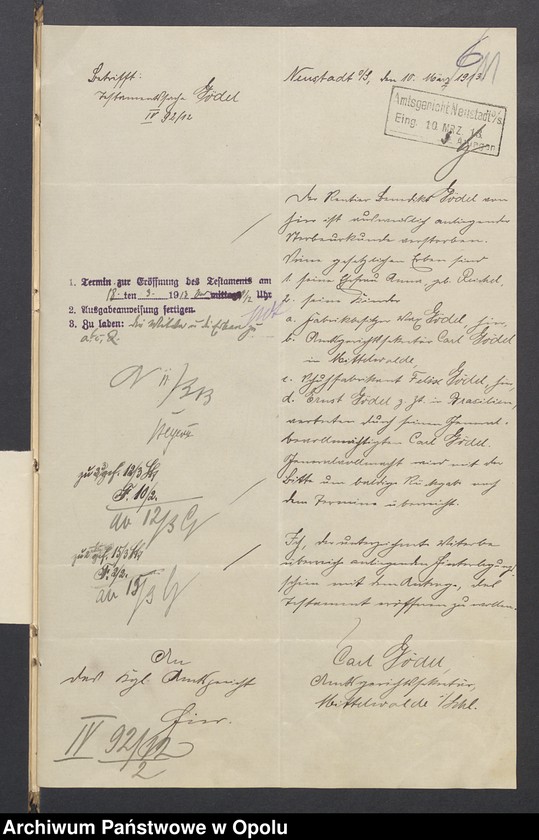 Betrifft:
Testamentssache Gödel
IV 92/12
Neustadt O/S, den 10. März 1913.
Amtsgericht Neustadt O/S.
Eing. 10. MRZ. 13
Der Rentier Benedikt Gödel von
hier ist ausweislich anliegender
Sterbeurkunde verstorben.
Seine gesetzlichen Erben sind
1. seine Ehefrau Anna geb. Reichel,
2. seine Kinder
a. Fabrikbesitzer Max Gödel, hier,
b. Amtsgerichtssekretär Carl Gödel
in Mittelwalde,
c. Schuhfabrikant Felix Gödel, hier,
d. Ernst Gödel z. Zt. in Brasilien,
vertreten durch seinen General-
bevollmächtigten Carl Gödel.
Generalvollmacht wird mit der
Bitte um baldige Rückgabe nach
dem Termine überreicht.
Ich, der unterzeichnete Miterbe
überreiche anliegenden Hinterlegungs-
schein mit dem Antrage, das
Testament eröffnen zu wollen.
Carl Gödel,
Amtsgerichtssekretär,
Mittelwalde i/Schl.
1. Termin zur Eröffnung des Testaments am
18. ten 3. 1913 mittags 1/2 Uhr
2. Ausgabeanweisung fertigen.
3. Zu laden: die Witwe u. die Erben zu
a, c, d.
N 11/3 13
12/3
F. 10/2.
ab 12/3 G
15/3
F. 2/2.
ab 15/3 G
An
das Kgl. Amtsgericht
hier.
IV 92/12
2
Archiwum Państwowe w Opolu